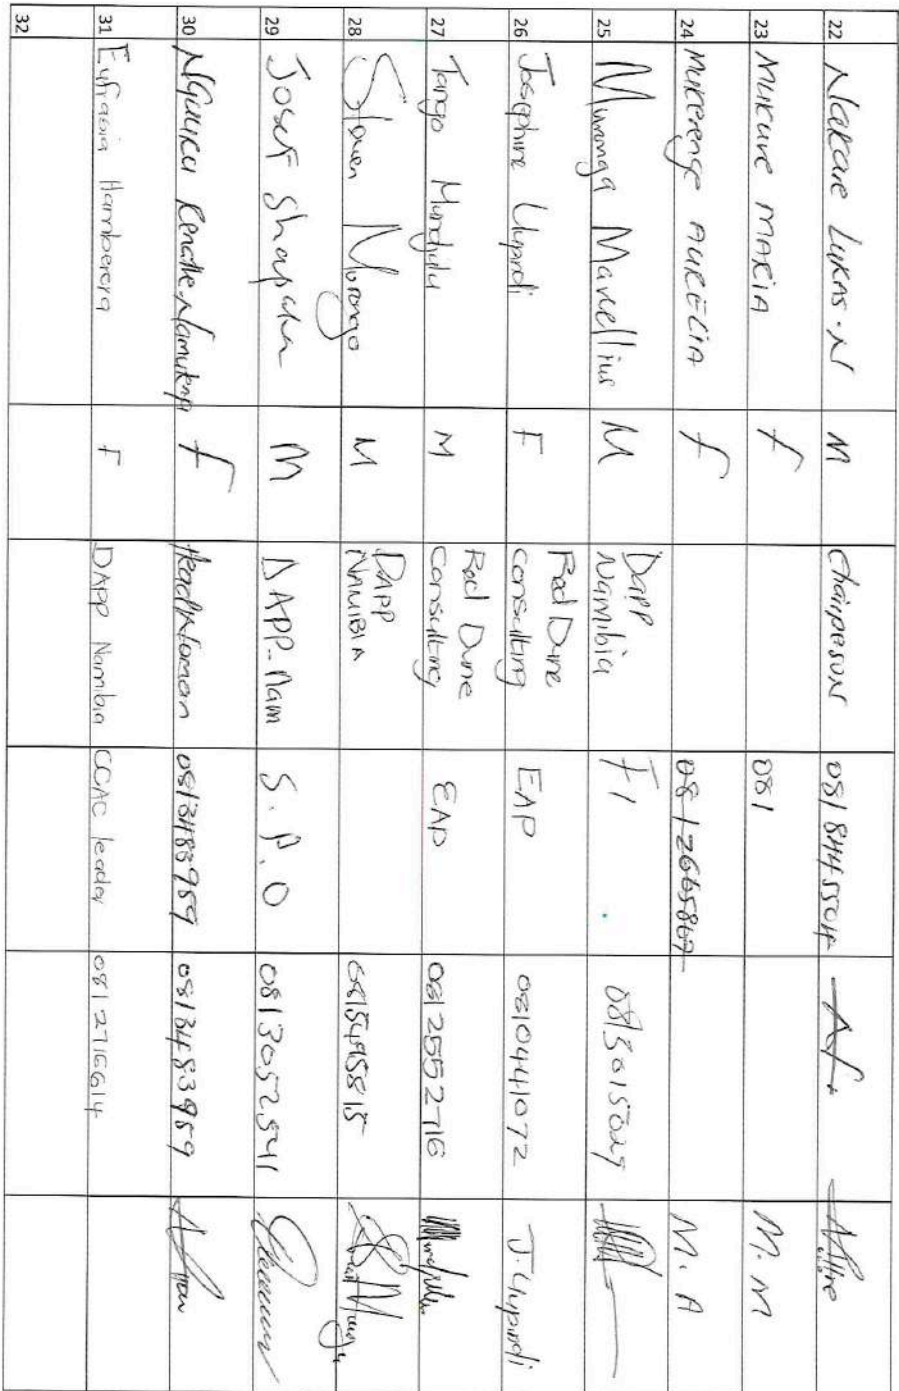 22 Nakare Lukas.N M Chairperson 0818445504
23 MUKUVE MARIA f 081 M.M
24 MUKERENGE AURELIA f 0812665867 M.A
25 Muronga Marcellius M DAPP Namibia FI 0813015029
26 Josephine Uupindi F Red Dune Consulting EAP 0810441072 J.Uupindi
27 Tango Mundjulu M Red Dune Consulting EAP 0812552716
28 Steven Murongo M DAPP NAMIBIA 0815495815
29 Josef Shapaka M DAPP-Nam S.P.O 0813052541
30 Renathe f Headwoman 0813483989 0813483989
31 Eufrasia Hamberera F DAPP Namibia CCAC leader 0812716614
32